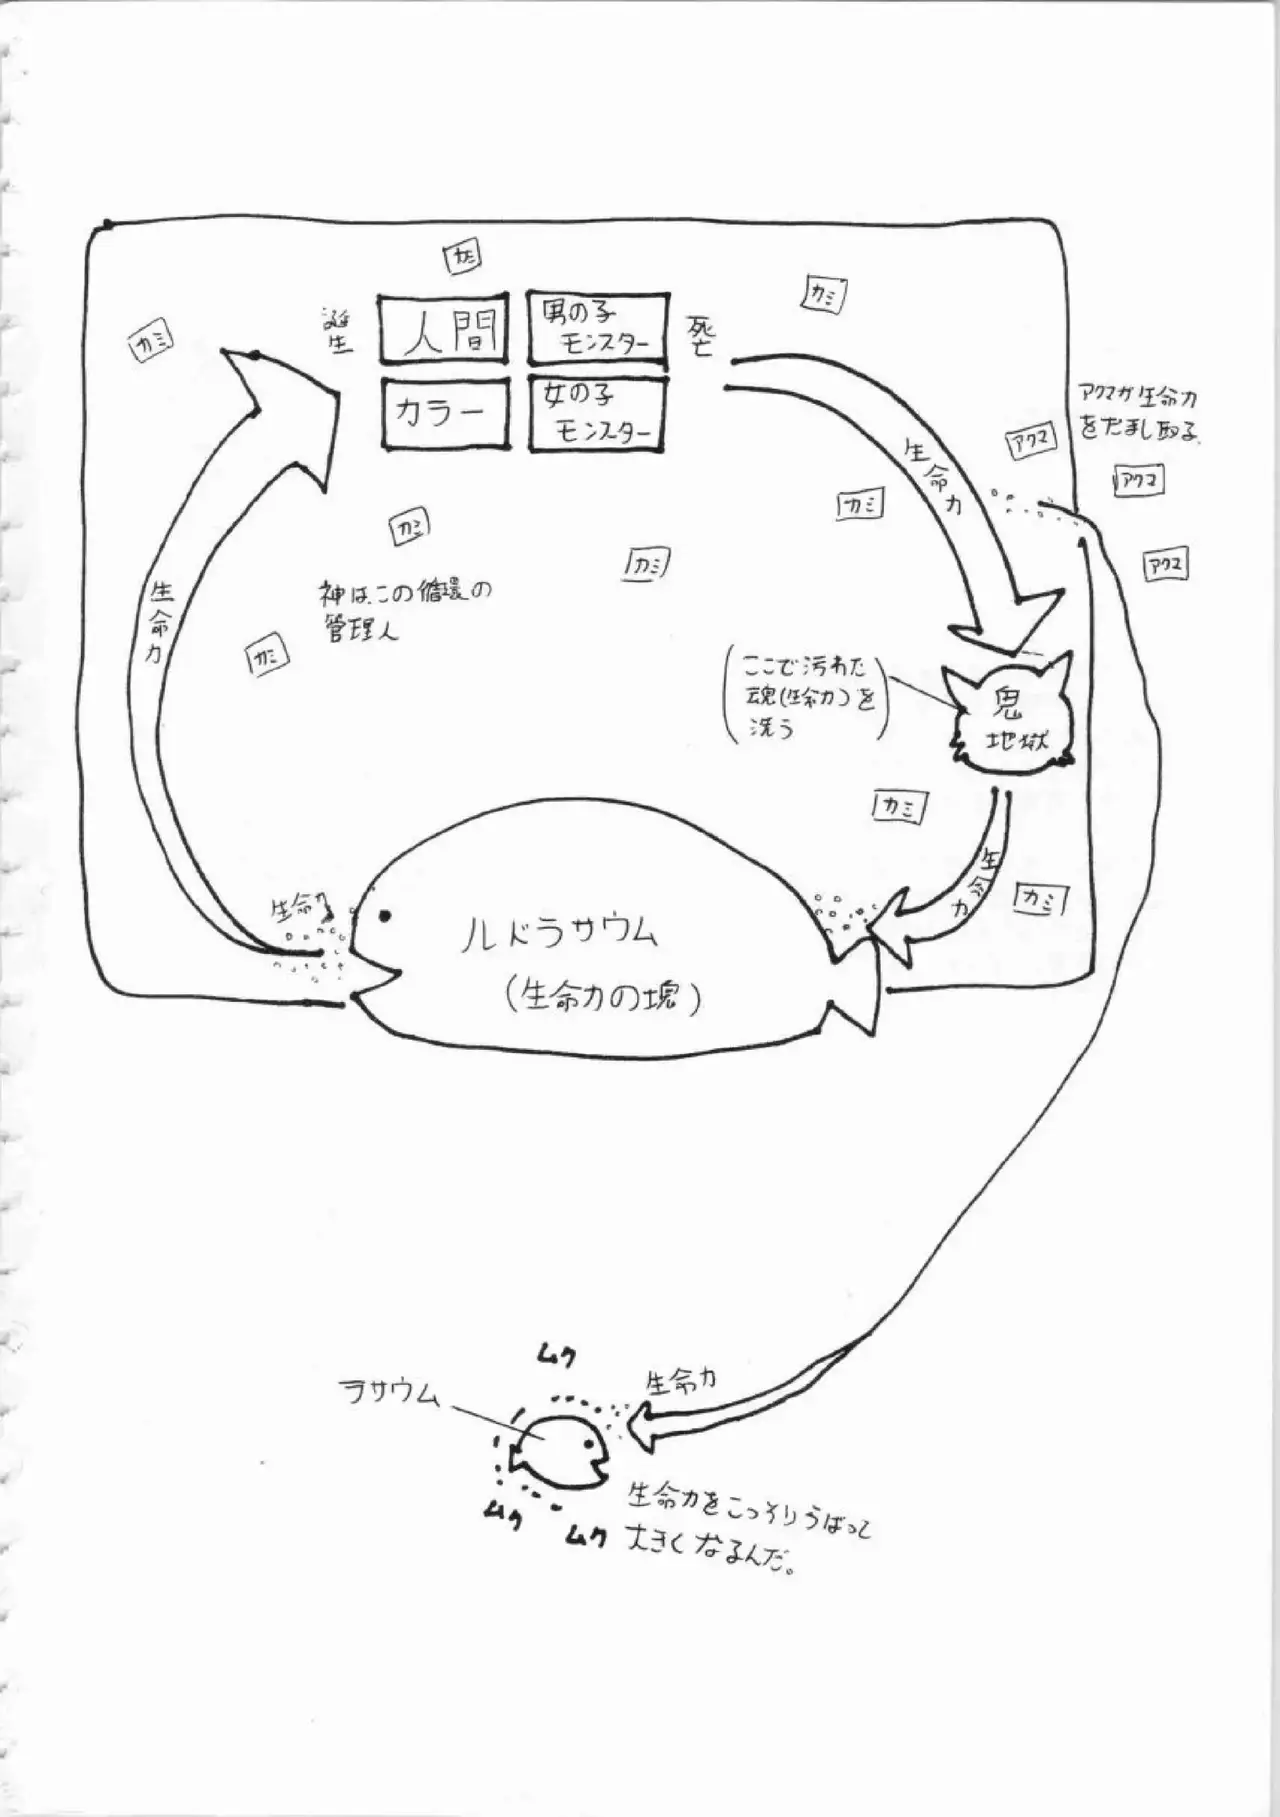 カミ
カミ
カミ
誕生
人間
男の子
モンスター
死亡
カラー
女の子
モンスター
アクマが生命力
をだまし取る。
アクマ
アクマ
アクマ
生命力
カミ
カミ
カミ
神は、この循環の
管理人
生命力
カミ
(ここで汚れた
魂(生命力)を
洗う)
鬼
地獄
カミ
生命力
カミ
生命力
ルドラサウム
(生命力の塊)
ムク
生命力
ラサウム
ムク
ムク
生命力をこっそりうばって
大きくなるんだ。